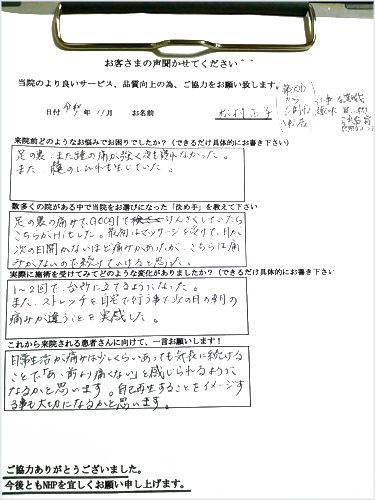 お客さまの声聞かせてください＾＾
当院のより良いサービス、品質向上の為、ご協力をお願い致します。
日付 令和 年 11月 お名前
来院前どのようなお悩みでお困りでしたか？（できるだけ具体的にお書き下さい
足の裏、また踵の痛が強く夜も寝れなかった。
また 腰のしびれも生じていた。
数多くの院がある中で当院をお選びになった「決め手」を教えて下さい
足の裏の痛みで、GOOGlで けんさくしていたら
こちらがHitした。最初はマッサージを受けて、
次の日動かないほど痛みがあったが、こちらは痛
みがないので続けていけると思った。
実際に施術を受けてみてどのような変化がありましたか？（できるだけ具体的にお書き下さい
1〜2回で、台所に立てるようになった。
また、ストレッチを自宅で行う事で次の日の朝の
痛みが違うことを実感した。
これから来院される患者さんに向けて、一言お願いします！
日常生活が痛みは少しくらいあっても気長に続ける
ことで「あ、前より痛くない」と感じられるように
なるかと思います。自己再生することをイメージす
る事も大切になるかと思います。
ご協力ありがとうございました。
今後ともNHPを宜しくお願い申し上げます。